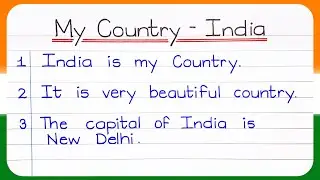 My Country - India
1 India is my Country.
2 It is very beautiful country.
3 The capital of India is
New Delhi.